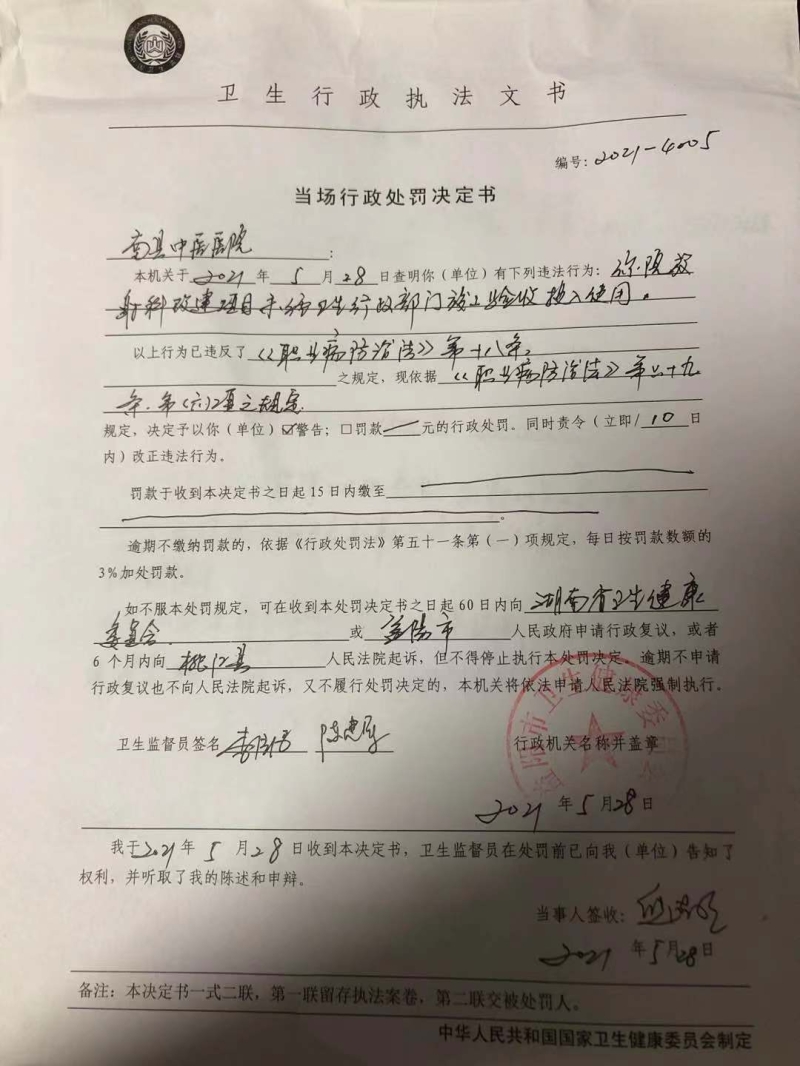 卫生行政执法文书
编号：2021-4005
当场行政处罚决定书
南县中医医院：
本机关于 2021 年 5 月 28 日查明你（单位）有下列违法行为：你院放
射科改建项目未经卫生行政部门竣工验收投入使用。
以上行为已违反了《职业病防治法》第十八条
之规定，现依据《职业病防治法》第六十九
条第（六）项之规定
规定，决定予以你（单位）☑警告；□罚款 元的行政处罚。同时责令（立即/ 10 日
内）改正违法行为。
罚款于收到本决定书之日起 15 日内缴至
。
逾期不缴纳罚款的，依据《行政处罚法》第五十一条第（一）项规定，每日按罚款数额的
3%加处罚款。
如不服本处罚规定，可在收到本处罚决定书之日起 60 日内向 湖南省卫生健康
委员会 或 益阳市 人民政府申请行政复议，或者
6 个月内向 桃江县 人民法院起诉，但不得停止执行本处罚决定。逾期不申请
行政复议也不向人民法院起诉，又不履行处罚决定的，本机关将依法申请人民法院强制执行。
益阳市卫生健康委员会
卫生监督员签名 行政机关名称并盖章
2021 年 5 月 28 日
我于 2021 年 5 月 28 日收到本决定书，卫生监督员在处罚前已向我（单位）告知了
权利，并听取了我的陈述和申辩。
当事人签收：
2021 年 5 月 28 日
备注：本决定书一式二联，第一联留存执法案卷，第二联交被处罚人。
中华人民共和国国家卫生健康委员会制定